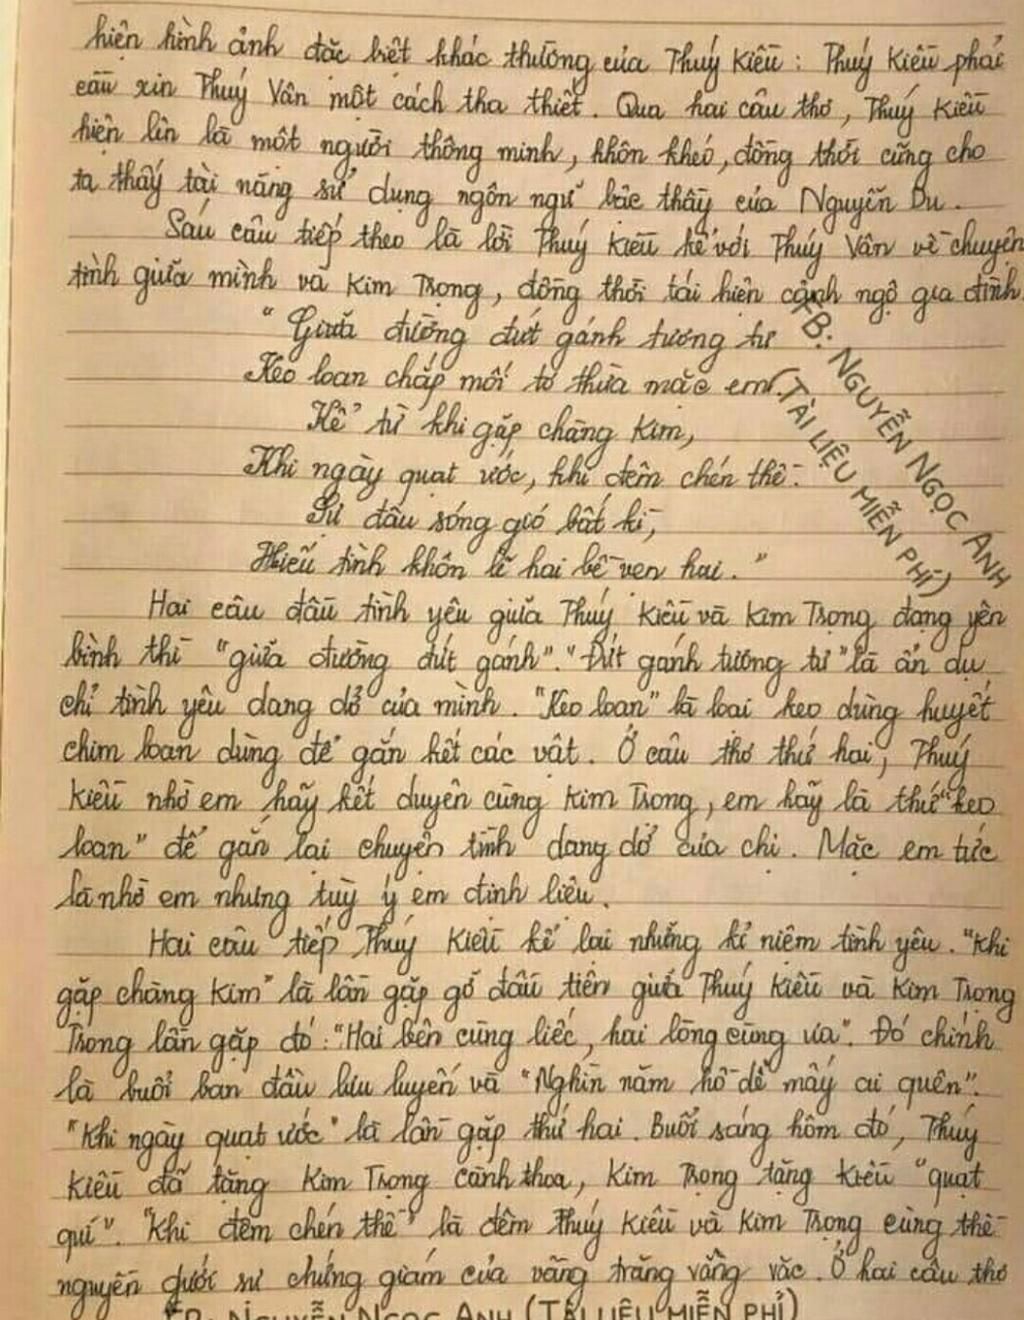 hiện hình ảnh đặc biệt khác thường của Thuý Kiều : Thuý Kiều phải
cầu xin Thuý Vân một cách tha thiết. Qua hai câu thơ, Thuý Kiều
hiện lên là một người thông minh, khôn khéo, đồng thời cũng cho
ta thấy tài năng sử dụng ngôn ngữ bậc thầy của Nguyễn Du.
Sáu câu tiếp theo là lời Thuý Kiều kể với Thuý Vân về chuyện
tình giữa mình và Kim Trọng, đồng thời tái hiện cảnh ngộ gia đình.
"Giữa đường đứt gánh tương tư
Keo loan chắp mối tơ thừa mặc em.
Kể từ khi gặp chàng Kim,
Khi ngày quạt ước, khi đêm chén thề.
Sự đâu sóng gió bất kì,
Hiếu tình khôn lẽ hai bề vẹn hai."
FB: NGUYỄN NGỌC ANH
(TÀI LIỆU MIỄN PHÍ)
Hai câu đầu tình yêu giữa Thuý Kiều và Kim Trọng đang yên
bình thì "giữa đường đứt gánh". "Đứt gánh tương tư" là ẩn dụ
chỉ tình yêu dang dở của mình. "Keo loan" là loại keo dùng huyết
chim loan dùng để gắn kết các vật. Ở câu thơ thứ hai, Thuý
Kiều nhờ em hãy kết duyên cùng Kim Trọng, em hãy là thứ "keo
loan" để gắn lại chuyện tình dang dở của chị. Mặc em tức
là nhờ em nhưng tuỳ ý em định liệu.
Hai câu tiếp Thuý Kiều kể lại những kỉ niệm tình yêu. "Khi
gặp chàng Kim" là lần gặp gỡ đầu tiên giữa Thuý Kiều và Kim Trọng
Trong lần gặp đó : "Hai bên cùng liếc, hai lòng cùng ưa". Đó chính
là buổi ban đầu lưu luyến và "Nghìn năm hồ dễ mấy ai quên".
"Khi ngày quạt ước" là lần gặp thứ hai. Buổi sáng hôm đó, Thuý
Kiều đã tặng Kim Trọng cành thoa, Kim Trọng tặng Kiều "quạt
quí". "Khi đêm chén thề" là đêm Thuý Kiều và Kim Trọng cùng thề
nguyền dưới sự chứng giám của vầng trăng vằng vặc. Ở hai câu thơ
FB: NGUYỄN NGỌC ANH (TÀI LIỆU MIỄN PHÍ)